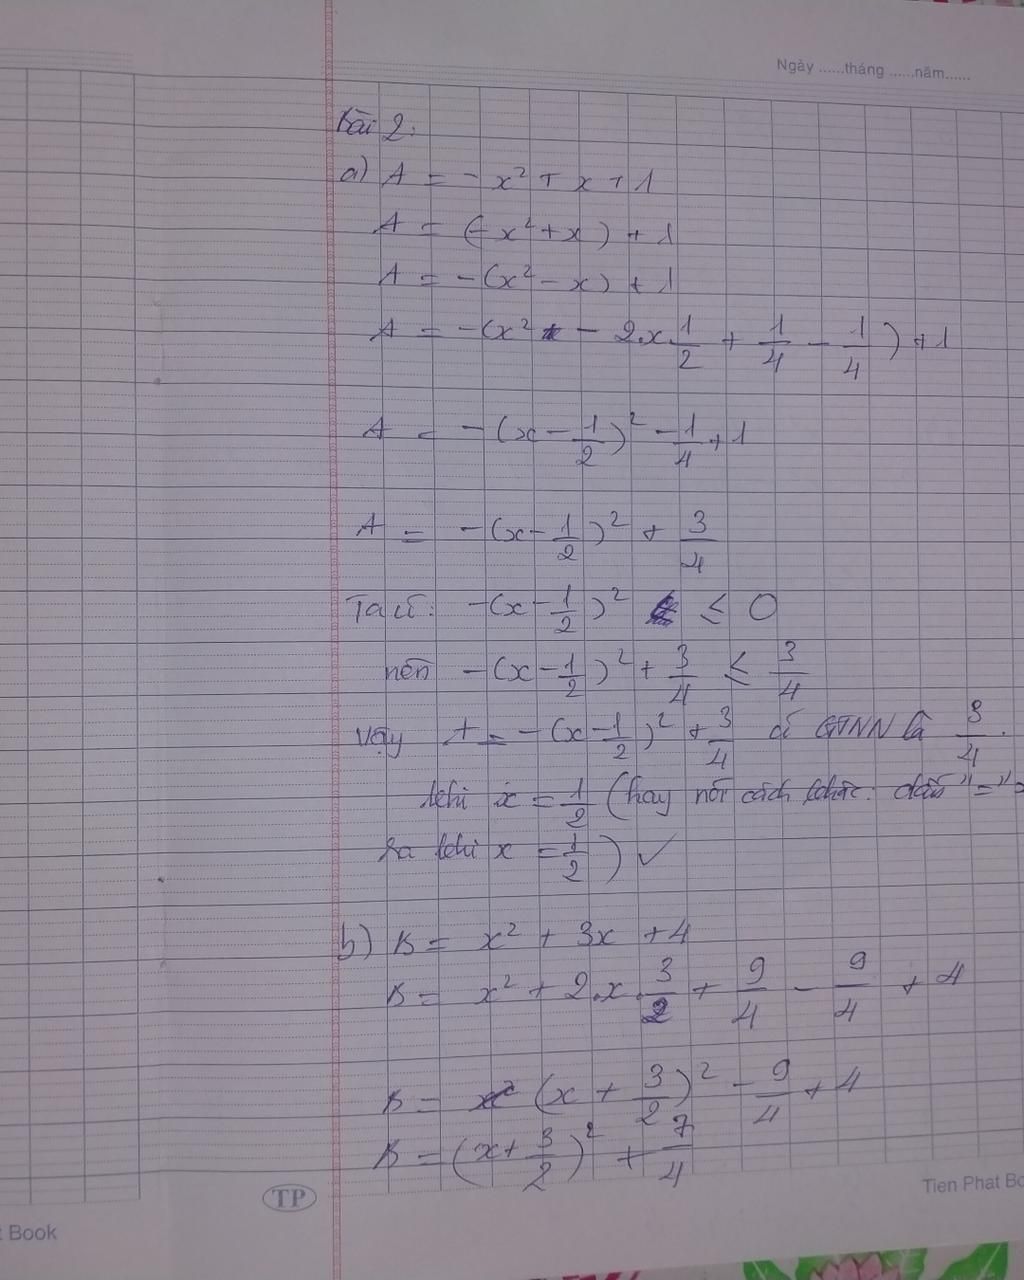 Ngày ......tháng ......năm......
Bài 2:
a) A = - x² + x + 1
A = (- x² + x) + 1
A = -(x² - x) + 1
A = -(x² - 2.x.1/2 + 1/4 - 1/4) + 1
A = -(x - 1/2)² - 1/4 + 1
A = -(x - 1/2)² + 3/4
Ta có: -(x - 1/2)² ≤ 0
nên -(x - 1/2)² + 3/4 ≤ 3/4
Vậy A = -(x - 1/2)² + 3/4 có GTNN là 3/4.
khi x = 1/2 (hay nói cách khác: dấu "="
ra khi x = 1/2) ✓
b) B = x² + 3x + 4
B = x² + 2.x.3/2 + 9/4 - 9/4 + 4
B = (x + 3/2)² - 9/4 + 4
B = (x + 3/2)² + 7/4
TP
Tien Phat Bo
t Book